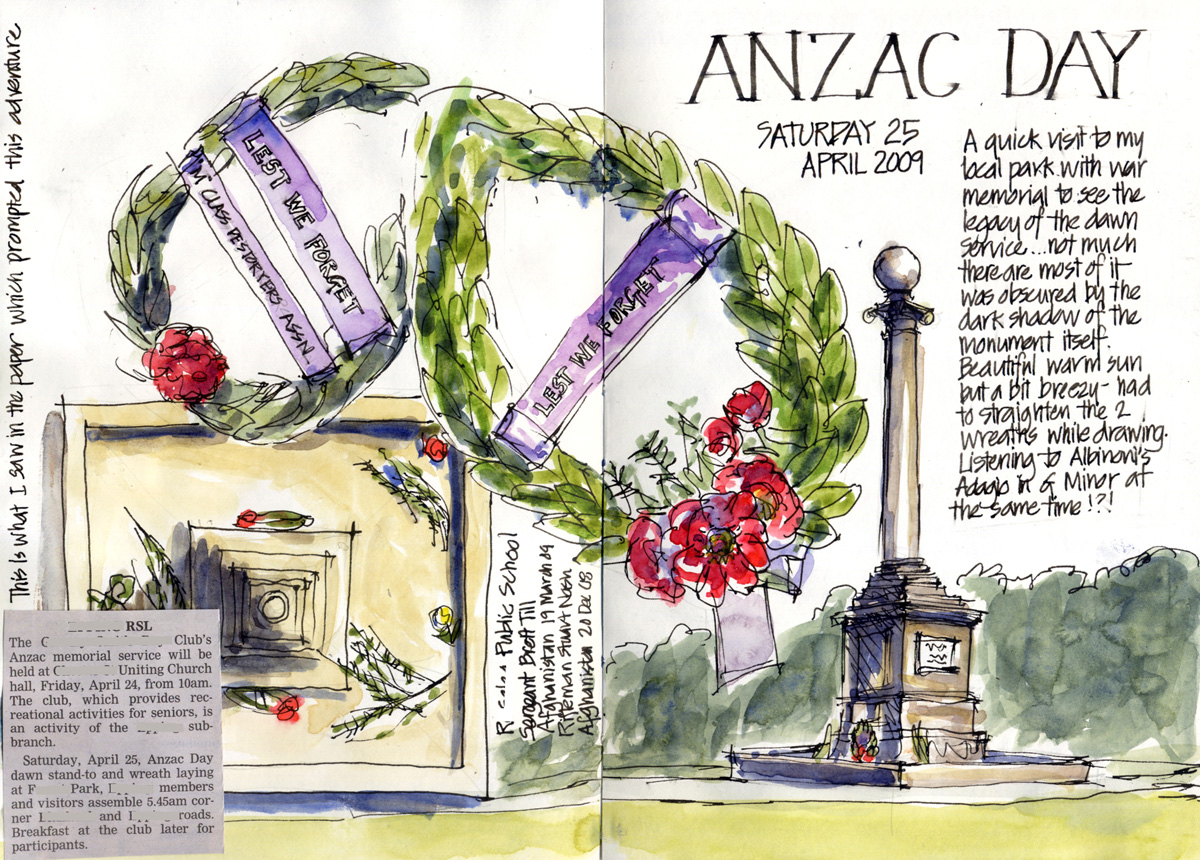 This is what I saw in the paper which prompted this adventure
LEST WE FORGET
'M CLASS DESTORYERS ASSN
LEST WE FORGET
ANZAC DAY
SATURDAY 25
APRIL 2009
A quick visit to my
local park with war
memorial to see the
legacy of the dawn
service...not much
there are most of it
was obscured by the
dark shadow of the
monument itself.
Beautiful warm sun
but a bit breezy - had
to straighten the 2
wreaths while drawing.
Listening to Albinoni's
Adagio in G Minor at
the same time!?!
Public School
Sergeant Brett Till
Afghanistan 19 March 09
Rifleman Stuart Nash
Afghanistan 20 Dec 08
RSL
The C Club's
Anzac memorial service will be
held at C Uniting Church
hall, Friday, April 24, from 10am.
The club, which provides rec-
reational activities for seniors, is
an activity of the sub-
branch.
Saturday, April 25, Anzac Day
dawn stand-to and wreath laying
at F Park, members
and visitors assemble 5.45am cor-
ner and roads.
Breakfast at the club later for
participants.